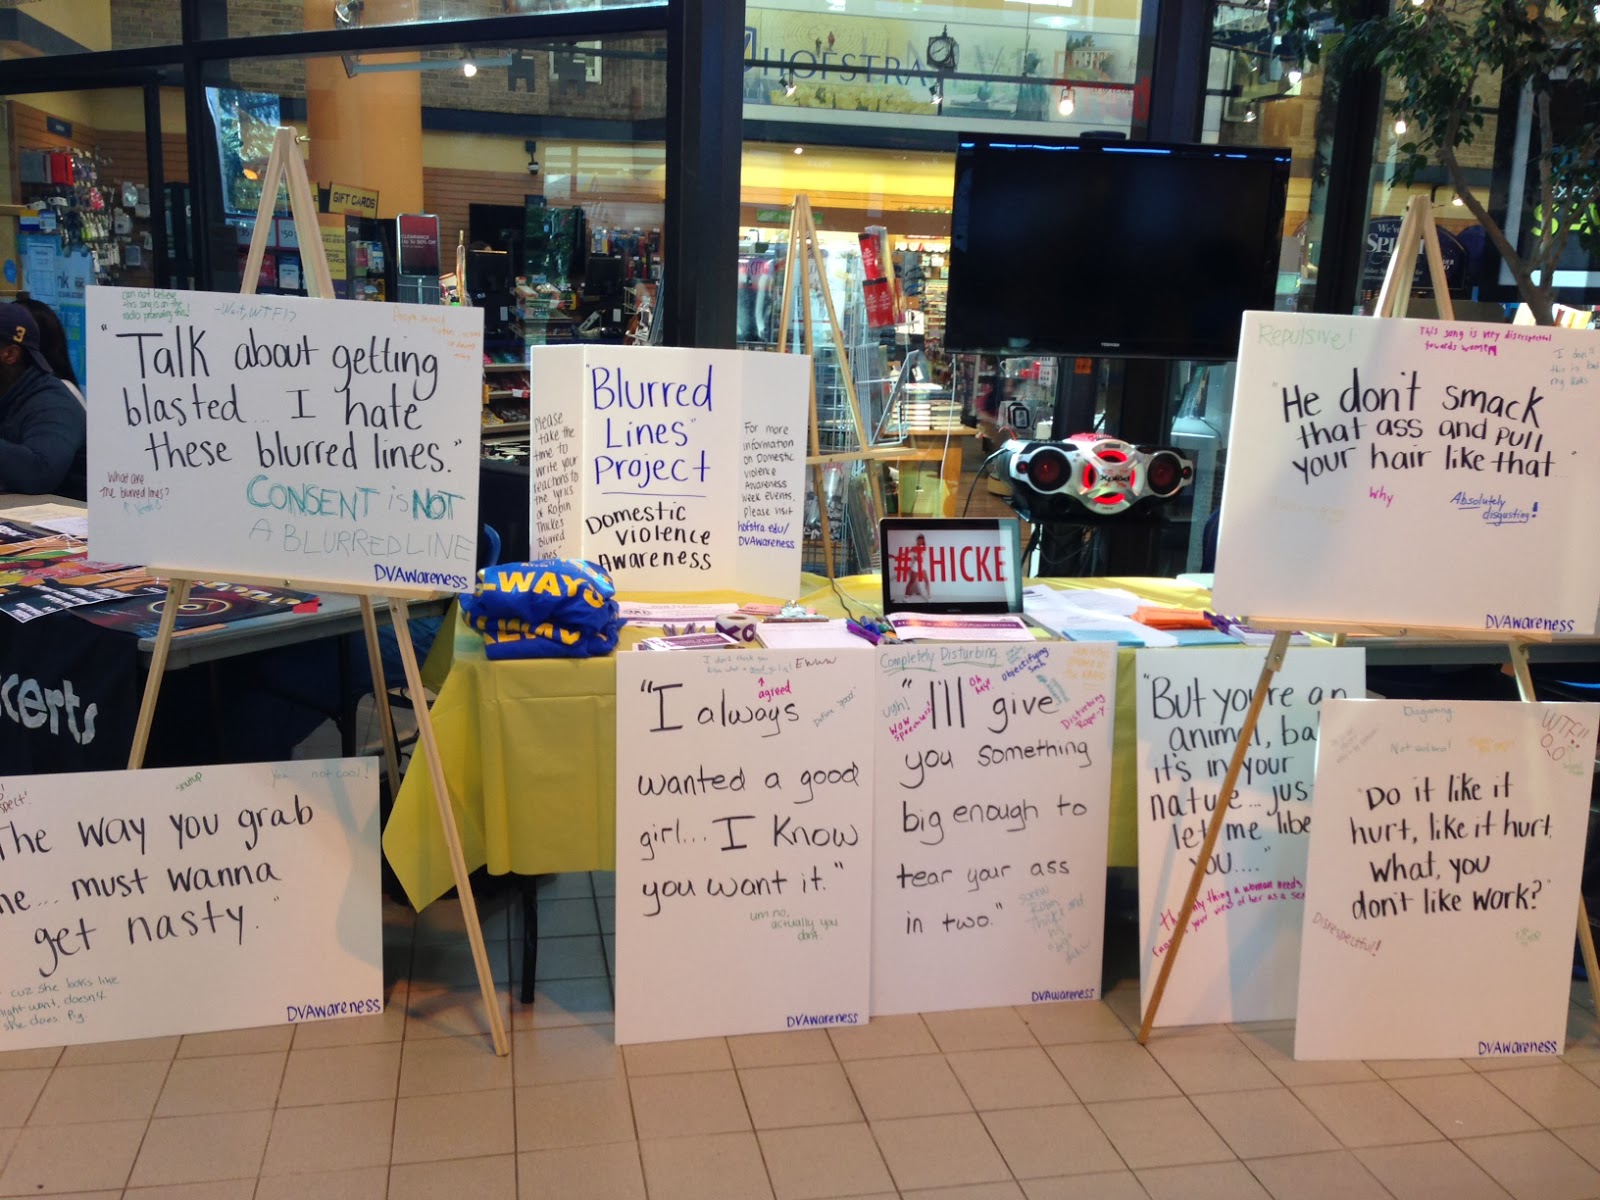 HOFSTRA
GIFT CARDS
CLEARANCE
TOSHIBA
can not believe
this song is on the
radio promoting this!
-Wait, WTF!?
"Talk about getting
blasted... I hate
these blurred lines."
What are
the blurred lines?
CONSENT is NOT
A BLURRED LINE
DVAwareness
"Blurred
Lines"
Project
Domestic
violence
Awareness
Please
take the
time to
write your
reactions to
the lyrics
of Robin
Thicke's
Blurred
Lines"
For more
information
on Domestic
violence
Awareness
Week events,
please visit
hofstra.edu/
DVAwareness
#THICKE
xplod
Repulsive!
This song is very disrespectful
towards women
"He don't smack
that ass and pull
your hair like that."
Why
Absolutely
disgusting!
DVAwareness
LWAYS
certs
shutup
not cool!
The way you grab
me... must wanna
get nasty."
cuz she looks like
might want, doesn't
she does. Pig.
DVAwareness
I don't think you
know what a good girl is!
Ewww
agreed
Define "good"
"I always
wanted a good
girl... I know
you want it."
umm no,
actually you
don't.
DVAwareness
Completely Disturbing
ugh!
Wow
speechless!
Oh
hey!
Objectifying
Smh
Disturbing
Rape-y
"I'll give
you something
big enough to
tear your ass
in two."
DVAwareness
"But you're an
animal,
it's in your
nature... jus
let me libe
you...."
only thing a woman needs
your view of her as a sex
Disgusting
WTF!!
O_O
"Do it like it
hurt, like it hurt
What, you
don't like work?"
Disrespectful!
DVAwareness